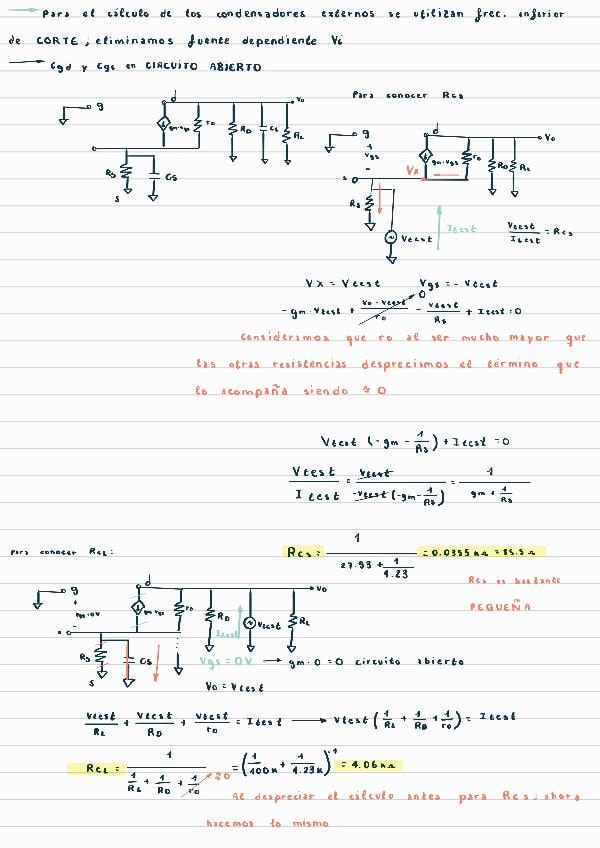 → Para el cálculo de los condensadores externos se utilizan frec. inferior
de CORTE, eliminamos fuente dependiente Vi
→ Cgd y Cgs en CIRCUITO ABIERTO
Para conocer Rcs
d Vo
g gm·vgs ro RD CL RL
Rs Cs
s
d Vo
g + vgs - gm·vgs ro RD RL
s Vx
Rs Vtest Itest Vtest/Itest = Rcs
Vx = Vtest Vgs = - Vtest
-gm·Vtest + (Vo-Vtest)/ro → 0 - Vtest/Rs + Itest = 0
Consideramos que ro al ser mucho mayor que
las otras resistencias despreciamos el término que
lo acompaña siendo ≈ 0
Vtest (-gm - 1/Rs) + Itest = 0
Vtest/Itest = Vtest/(-Vtest(-gm - 1/Rs)) = 1/(gm + 1/Rs)
Para conocer RCL:
Rcs = 1/(27.93 + 1/4.23) = 0.0355 kΩ = 35.5 Ω
Rcs es bastante
PEQUEÑA
d Vo
g + - ro RD Vtest RL
Itest
Rs Cs
s
Vgs = 0V → gm·0 = 0 circuito abierto
Vo = Vtest
Vtest/RL + Vtest/RD + Vtest/ro = Itest → Vtest (1/RL + 1/RD + 1/ro) = Itest
RCL = 1/(1/RL + 1/RD + 1/ro) ≈0 = (1/100K + 1/4.23K)^-1 = 4.06 kΩ
Al despreciar el cálculo antes para Rcs, ahora
hacemos lo mismo